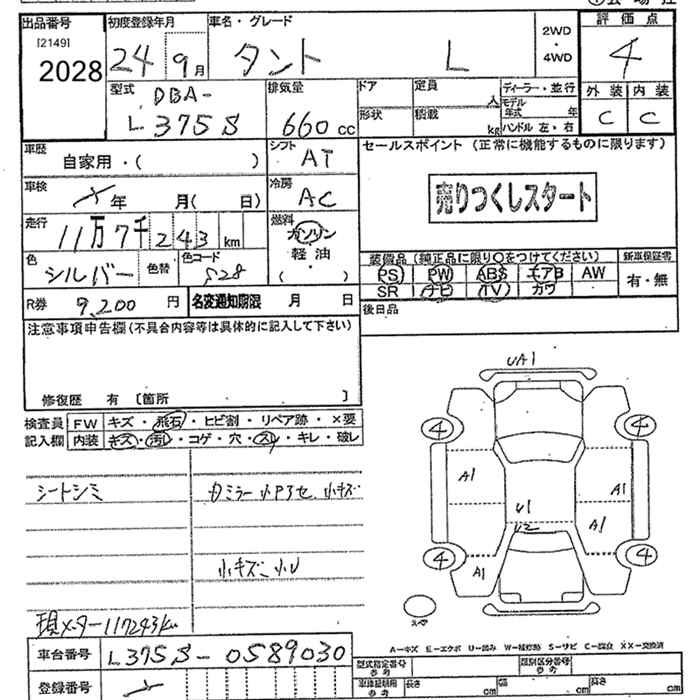 出品番号 初度登録年月 車名・グレード 2WD・4WD 評価点
[2149]
2028 24年 9月 タント L 4
型式 DBA-L375S 排気量 660cc ドア 定員 人 ディーラー・並行 外装 内装
形状 積載 kg モデル年式 年 ハンドル 左・右 C C
車歴 自家用・( ) シフト AT セールスポイント (正常に機能するものに限ります)
車検 年 月( 日) 冷房 AC 売りつくしスタート
走行 11万7千243km 燃料 ガソリン 軽油・( )
色 シルバー 色替 色コード S28
装備品 (純正品に限り○をつけてください) 新車保証書
PS PW ABS エアB AW 有・無
SR ナビ TV カワ
R券 9,200円 名変通知期限 月 日 後日品
注意事項申告欄(不具合内容等は具体的に記入して下さい)
修復歴 有 [箇所 ]
検査員記入欄 FW キズ・飛石・ヒビ割・リペア跡・×要
内装 キズ・汚レ・コゲ・穴・スレ・キレ・破レ
シートシミ
小キズ
小キズ 小U
現メーター117243km
UA1
4 4
A1 A1
U1
U2 A1
4 4
A1
スペア
A−キズ E−エクボ U−凹み W−補修跡 S−サビ C−腐食 XX−交換済
車台番号 L375S-0589030
型式指定番号 参考 類別区分番号 参考
登録番号 車検証明用 参考 長さ cm 幅 cm 高さ cm